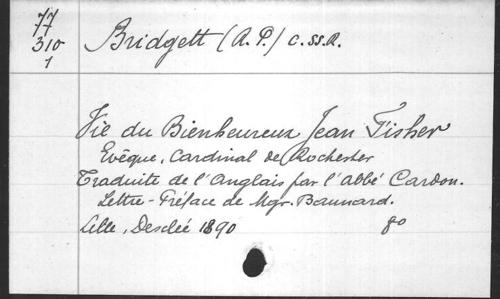 77
310
1
Bridgett (A. P.) c.ss.R.
Vie du Bienheureux Jean Fisher
Evêque, Cardinal de Rochester
Traduite de l'Anglais par l'abbé Cardon.
Lettre-Préface de Mgr. Baunard.
Lille, Desclée 1890 8o